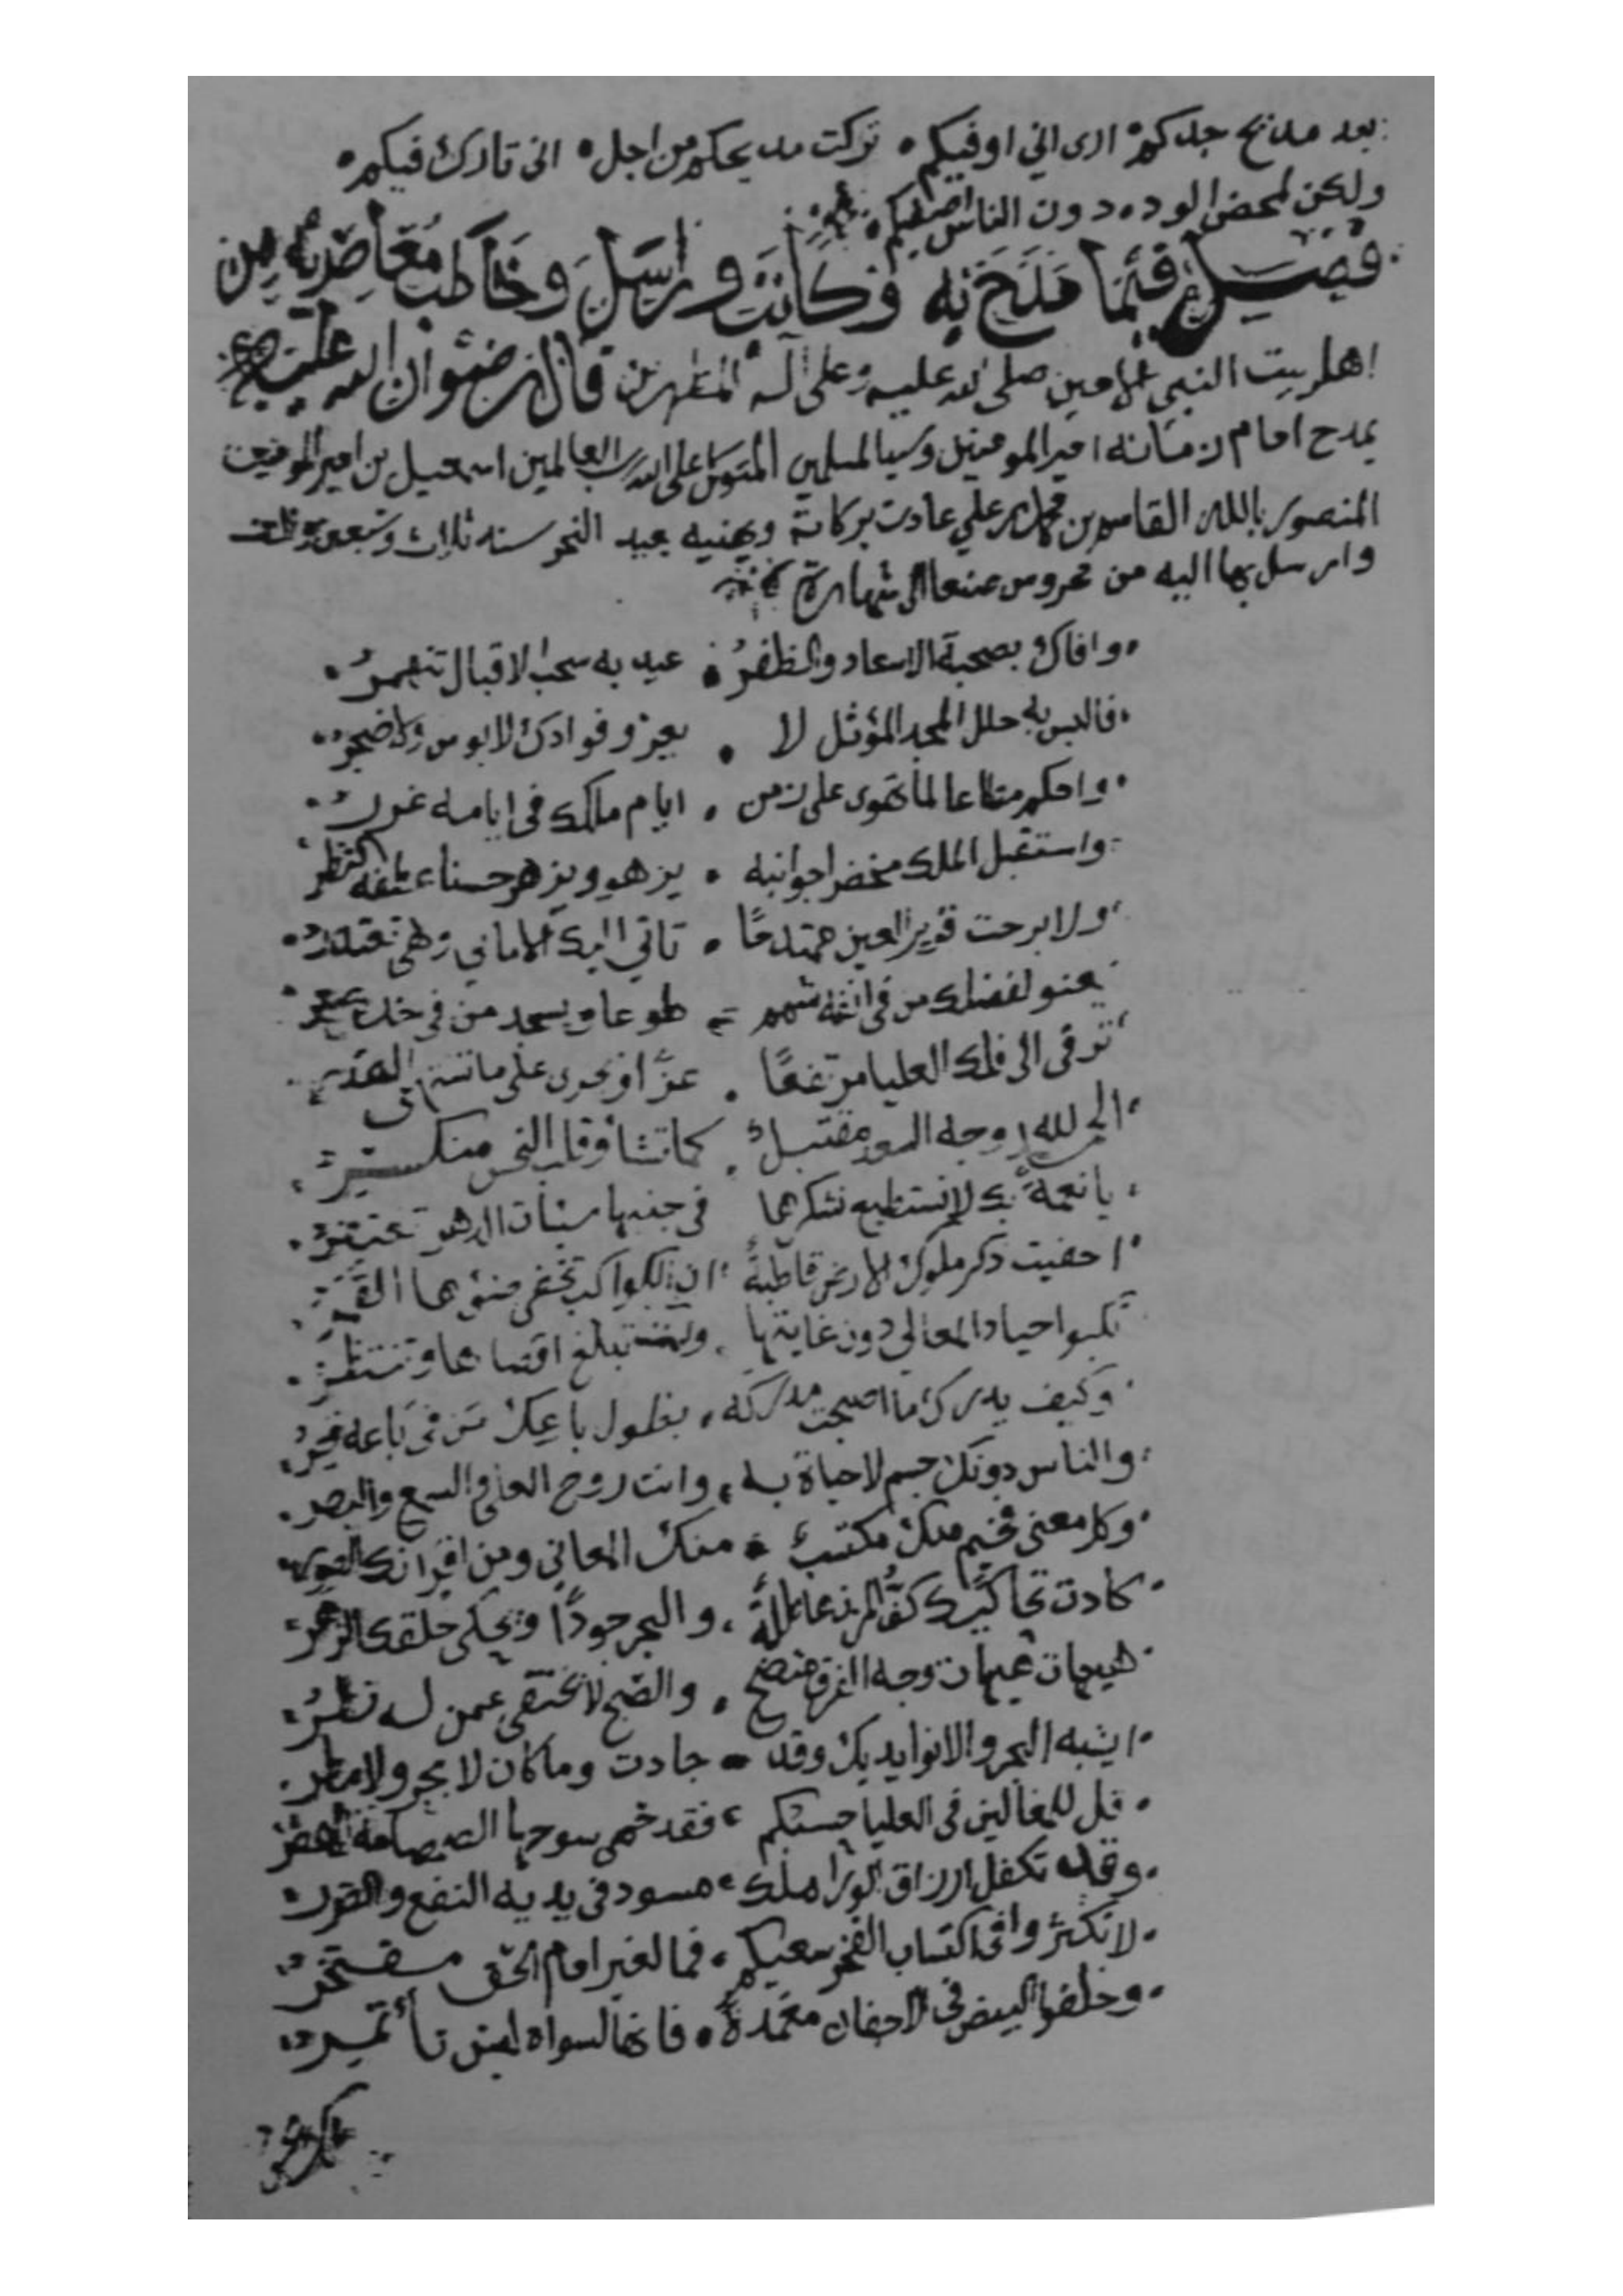 بعد مديح جدكم ارى اني اوفيكم • تركت مديحكم من اجل • انى تارك فيكم •
ولكن لمحض الود دون الناس اصفيكم
فصل فيما مدح به وكاتب وراسل وخاطب معاصريه من
اهل بيت النبي الامين صلى الله عليه وعلى آله المطهرين قال رضوان الله عليه
يمدح امام زمانه امير المومنين وسيد المسلمين المتوكل على الله رب العالمين اسمعيل بن امير المومنين
المنصور بالله القاسم بن محمد بن علي عادت بركاته ويهنيه بعيد النحر سنه ثلاث وسبعين والف
وارسل بها اليه من محروس صنعا الى شهارة
وافاك بصحبة الاسعاد والظفر • عيد به سحب الاقبال تنهمر
فالبس به حلل المجد المؤثل لا • يعزو فوادك لا بوس ولا ضجر
واحكم مطاعا لما تهوى على زمن • ايام ملكك في ايامه غرر
واستقبل الملك مخضرا جوانبه • يزهو ويزهر حسنا
ولا برحت قرير العين ممتدحا • تاتي اليك الاماني وهي تعتذر
يعنو لفضلك من في انفه شمم • طوعا ويسجد من في خده صعر
ترقى الى فلك العليا مرتفعا • عزا وتجرى على ما تشتهي القدر
الحمد لله وجه السعد مقتبل • كما تشا وقلب النحس منكسر
يا نعمة بك لا نستطيع نشكرها في جنبها سيئات الدهر تغتفر
اخفيت ذكر ملوك الارض قاطبة ان الكواكب تخفي ضوءها القمر
تكبوا جياد المعالي دون غايتها • تبلغ اقصاها وتنتظر
وكيف يدرك ما اصبحت مدركه • بطول باعك من في باعه قصر
والناس دونك جسم لا حياة به • وانت روح العلى والسمع والبصر
وكل معنى فخيم منك مكتسب • منك المعاني ومن اقرانك الصور
كادت تحاكيك كف المزن هاطلة • والبحر جودا ويحكي خلقك الزهر
هيهات هيهات وجه الفرق متضح • والصبح لا يختفي عمن له نظر
ايشبه البحر والانوا يديك وقد • جادت وما كان لا بحر ولا مطر
قل للمغالين في العليا حسبكم • فقد حمى سوحها الصمصامة الذكر
وقد تكفل ارزاق الورا ملك • مسود في يديه النفع والضرر
لا تكثروا في اكتساب الفخر سعيكم • فما لغير امام الحق مفتخر
وخلفوا البيض في الاجفان مغمدة • فانها لسواه ليس تأتمر